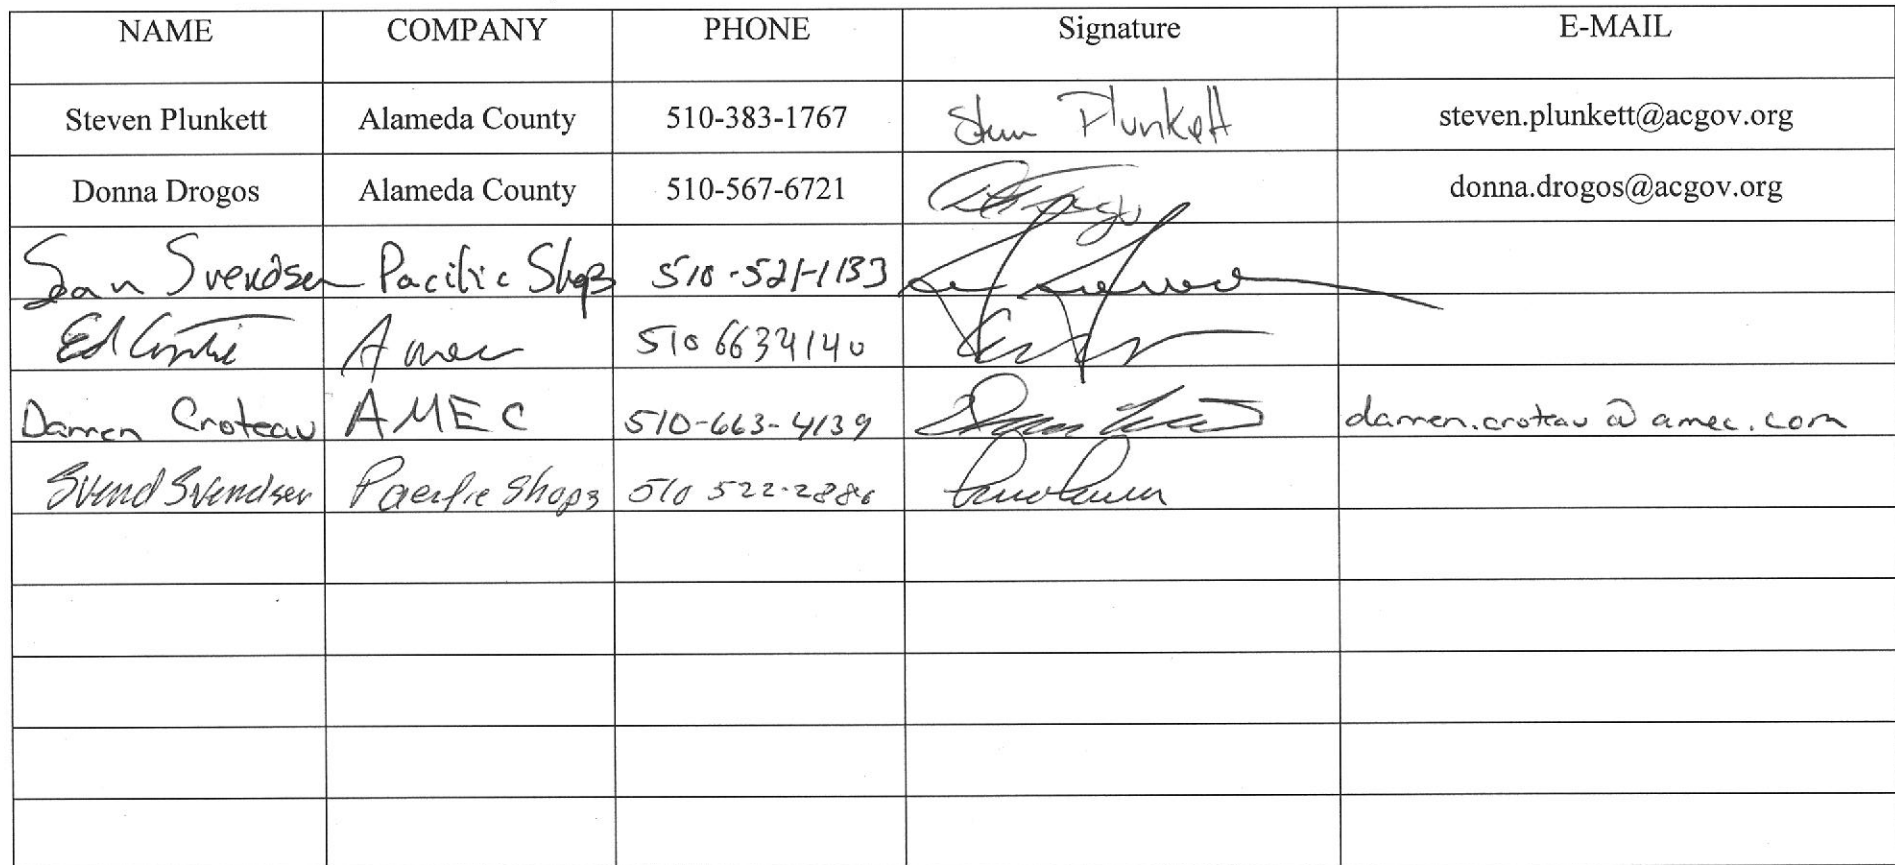 NAME COMPANY PHONE Signature E-MAIL
Steven Plunkett Alameda County 510-383-1767 Steven Plunkett steven.plunkett@acgov.org
Donna Drogos Alameda County 510-567-6721 donna.drogos@acgov.org
Sean Svendsen Pacific Shops 510-521-1133
Ed Conti Amec 510 6634140
Darren Croteau AMEC 510-663-4139 darren.croteau@amec.com
Svend Svendsen Pacific Shops 510 522-2886